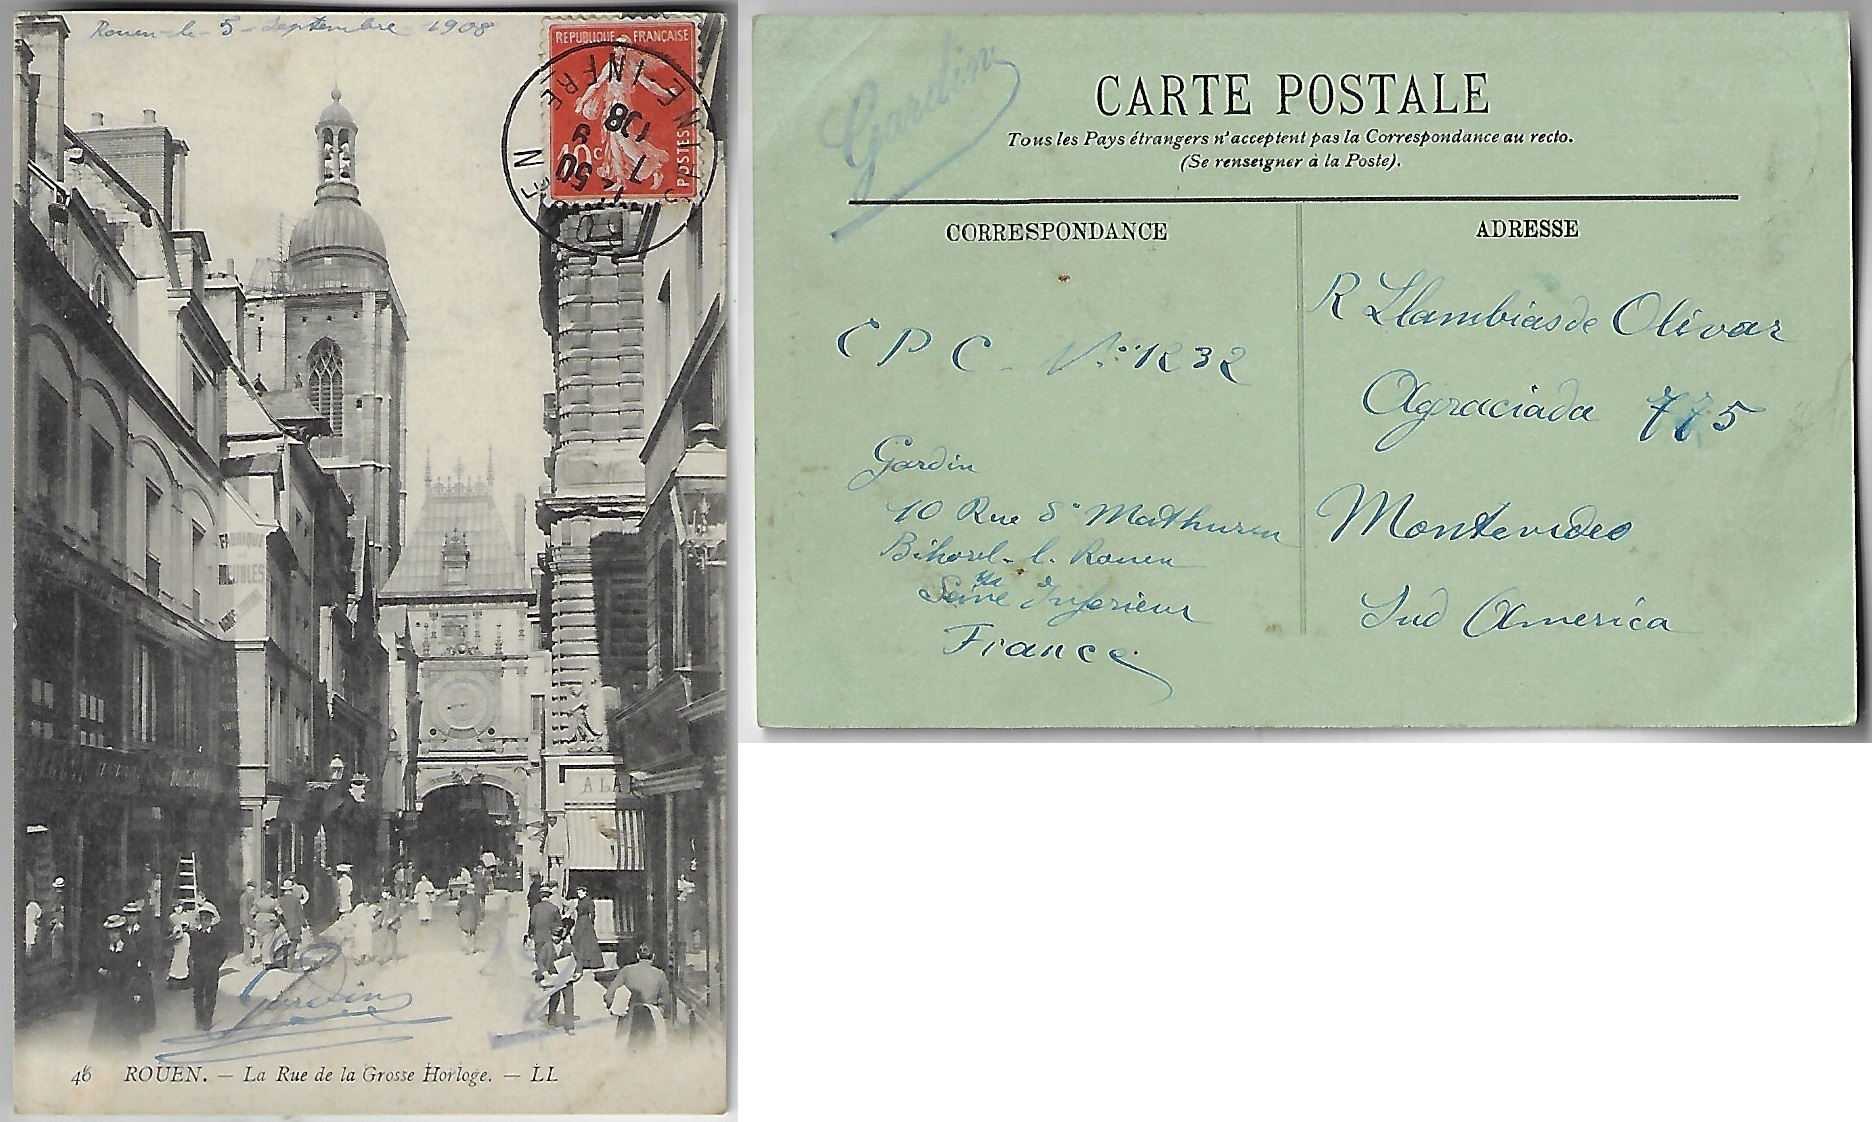 Rouen - le - 5 - Septembre - 1908
REPUBLIQUE FRANÇAISE
10c
POSTES
ROUEN
SEINE-INFRE
14 50
7 9
08
FABRIQUE
MEUBLES
A LA
Gardin
46 ROUEN. — La Rue de la Grosse Horloge. — LL
Gardin
CARTE POSTALE
Tous les Pays étrangers n'acceptent pas la Correspondance au recto.
(Se renseigner à la Poste).
CORRESPONDANCE
C P C - No. 1232
Gardin
10 Rue St Mathurin
Bihorel - l. Rouen
Seine Inferieur
France
ADRESSE
R Llambias de Olivar
Agraciada 775
Montevideo
Sud America